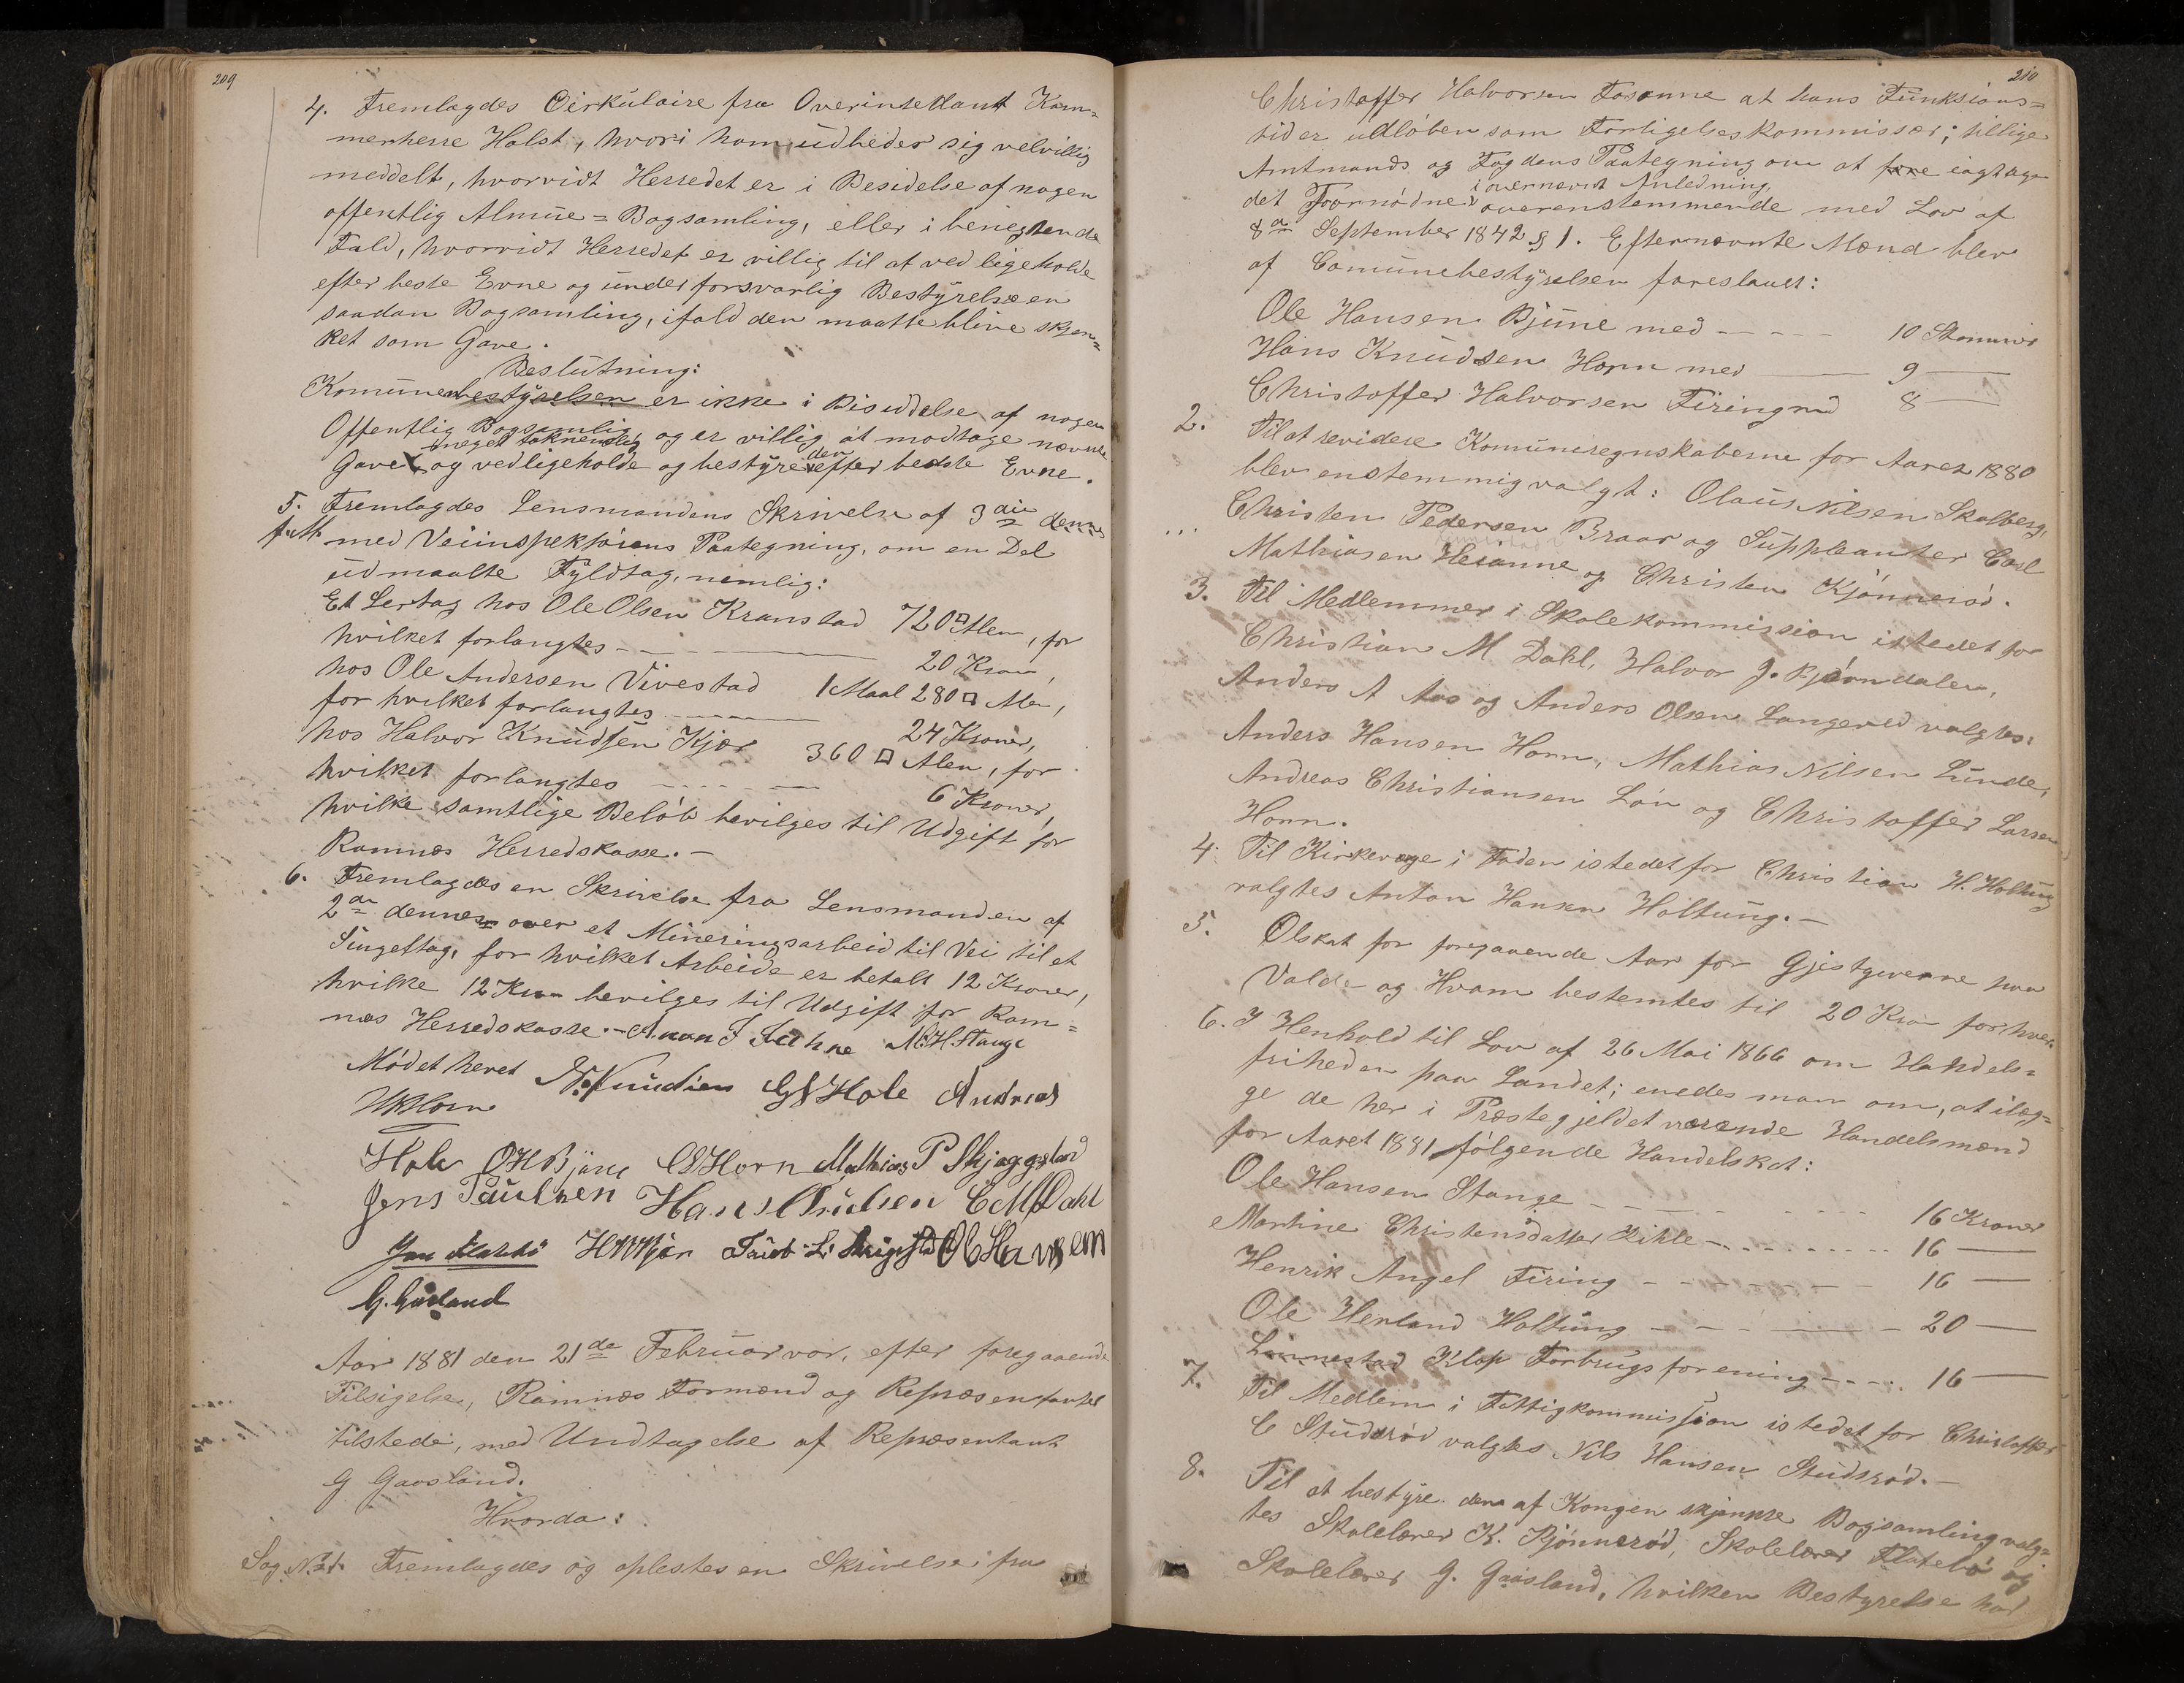 209
4. Fremlagdes Cirkulaire fra Overintendant Kam=
merherre Holst, hvori han udbeder sig velvillig
meddelt, hvorvidt Herredet er i Besidelse af nogen
offentlig Almue=Bogsamling, eller i benegtende
Fald, hvorvidt Herredet er villig til at ved ligeholde
efter beste Evne og under forsvarlig Bestyrelse en
saadan Bogsamling, ifald den maatte blive skjen=
ket som Gave.
Beslutning:
Komunebestyrelsen er ikke i Besiddelse af nogen
Offentlig Bogsamlig og er villig at modtage nævnte
meget taknemlig
Gave og vedligeholde og bestyre den efter bedste Evne.
5. Fremlagdes Lensmandens Skrivelse af 3die dennes
med Veiinspektørens Paategning, om en Del
udmaalte Fyldtag, nemlig:
Et Lertag hos Ole Olsen Kranstad 720 □ Alen, for
hvilket forlangtes 20 Kron,
hos Ole Andersen Vivestad 1 Maal 280 □ Alen,
for hvilket forlangtes 24 Kroner,
hos Halvor Knudsen Kjær 360 □ Alen, for
hvilket forlangtes 6 Kroner,
hvilke samtlige Beløb bevilges til Udgift for
Ramnæs Herredskasse.–
6. Fremlagdes en Skrivelse fra Lensmanden af
2de dennes over et Mineringsarbeid til Vei til et
Singeltag, for hvilket Arbeide er betalt 12 Kroner,
hvilke 12 Kron bevilges til Udgift for Ram=
næs Herredskasse.–
M.H. Stange
Mødet hevet Knudsen Hole Andreas
HKHorn
Hole OHBjune Horn Mathias P Skjeggstad
Jens Paulsen Hans Knudsen CMDahl
Hansen
G. Gaasland
Aar 1881 den 21de Februar var, efter foregaaende
Tilsigelse, Ramnæs Formænd og Repræsentanter
tilstede, med Undtagelse af Repræsentant
G Gaasland.
Hvorda:
Sag No 1. Fremlagdes og oplestes en Skrivelse fra
210
Christoffer Halvorsen at hans Funksions=
tid er udløben som Forligelseskommissær; tillige
Amtmands og Fogdens Paategning om at iagtage
i overnævnt Anledning
det Fornødne overenstemmende med Lov af
8de September 1842 § 1. Efternævnte Mænd blev
af Comunebestyrelsen foreslaaet:
Ole Hansen Bjune med 10 Stemmer
Hans Knudsen Horn med 9 —
Christoffer Halvorsen Firingrud 8 —
2. Til at revidere Komuneregnskaberne for Aaret 1880
blev enstemmig valgt: Olaus Nilsen Skolberg,
Christen Pedersen Braar og Suppleanter Carl
Mathiasen Hesanne og Christen Kjønnerød.
3. Til Medlemmer i Skolekommission istedet for
Christian M. Dahl, Halvor J. Bjørndalen,
Anders A Aas og Anders Olsen Langeved valgtes:
Anders Hansen Horn, Mathias Nilsen Lunde,
Andreas Christiansen Løn og Christoffer Larsen
Horn.
4. Til Kirkeværge i Foden istedet for Christian H. Holtung
valgtes Anton Hansen Holtung.–
5. Ølskat for foregaaende Aar for Gjestgiverne paa
Valde og Hvam bestemtes til 20 Kron for hver.
6. I Henhold til Lov af 26 Mai 1866 om Handels=
friheden paa Landet; enedes man om, at ilæg=
ge de her i Præstegjeldet værende Handelsmænd
for Aaret 1881 følgende Handelskat:
Ole Hansen Stange 16 Kroner
Martine Christensdatter Kihle 16 —
Henrik Angel Firing 16 —
Ole Herland Holtung 20 —
Linnestad Klop Forbrugsforening 16 —
7. Til Medlem i Fattigkommission istedet for Christoffer
C Studsrød valgtes Nils Hansen Studsrød.–
8. Til at bestyre den af Kongen skjenkte Bogsamling valg=
tes Skolelærer K. Kjønnerød, Skolelærer Flatebø og
Skolelærer G. Gaasland, hvilken Bestyrelse har